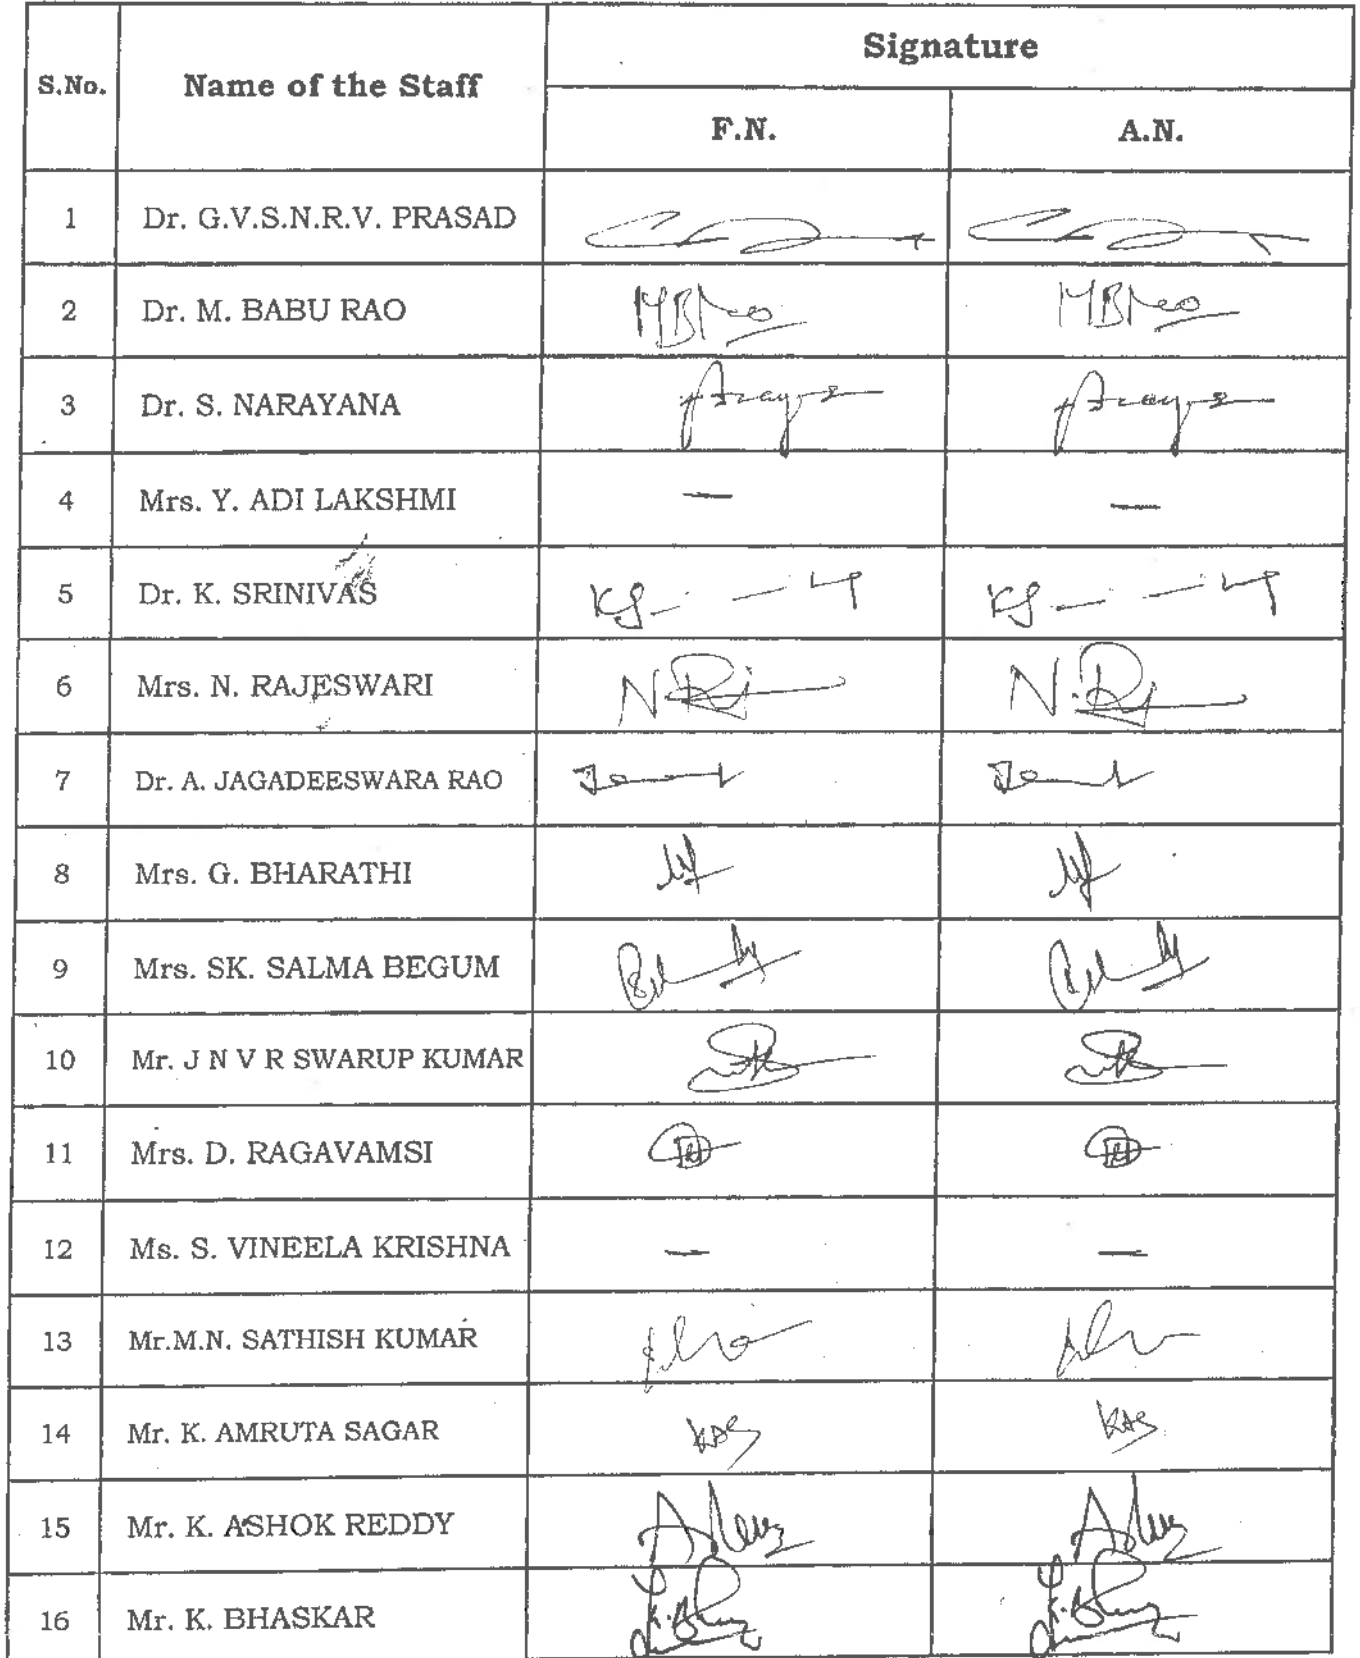 Signature
S.No. Name of the Staff
F.N. A.N.
1 Dr. G.V.S.N.R.V. PRASAD
2 Dr. M. BABU RAO MBRao MBRao
3 Dr. S. NARAYANA
4 Mrs. Y. ADI LAKSHMI — —
5 Dr. K. SRINIVAS
6 Mrs. N. RAJESWARI
7 Dr. A. JAGADEESWARA RAO
8 Mrs. G. BHARATHI
9 Mrs. SK. SALMA BEGUM
10 Mr. J N V R SWARUP KUMAR
11 Mrs. D. RAGAVAMSI
12 Ms. S. VINEELA KRISHNA — —
13 Mr.M.N. SATHISH KUMAR
14 Mr. K. AMRUTA SAGAR KAS KAS
15 Mr. K. ASHOK REDDY
16 Mr. K. BHASKAR